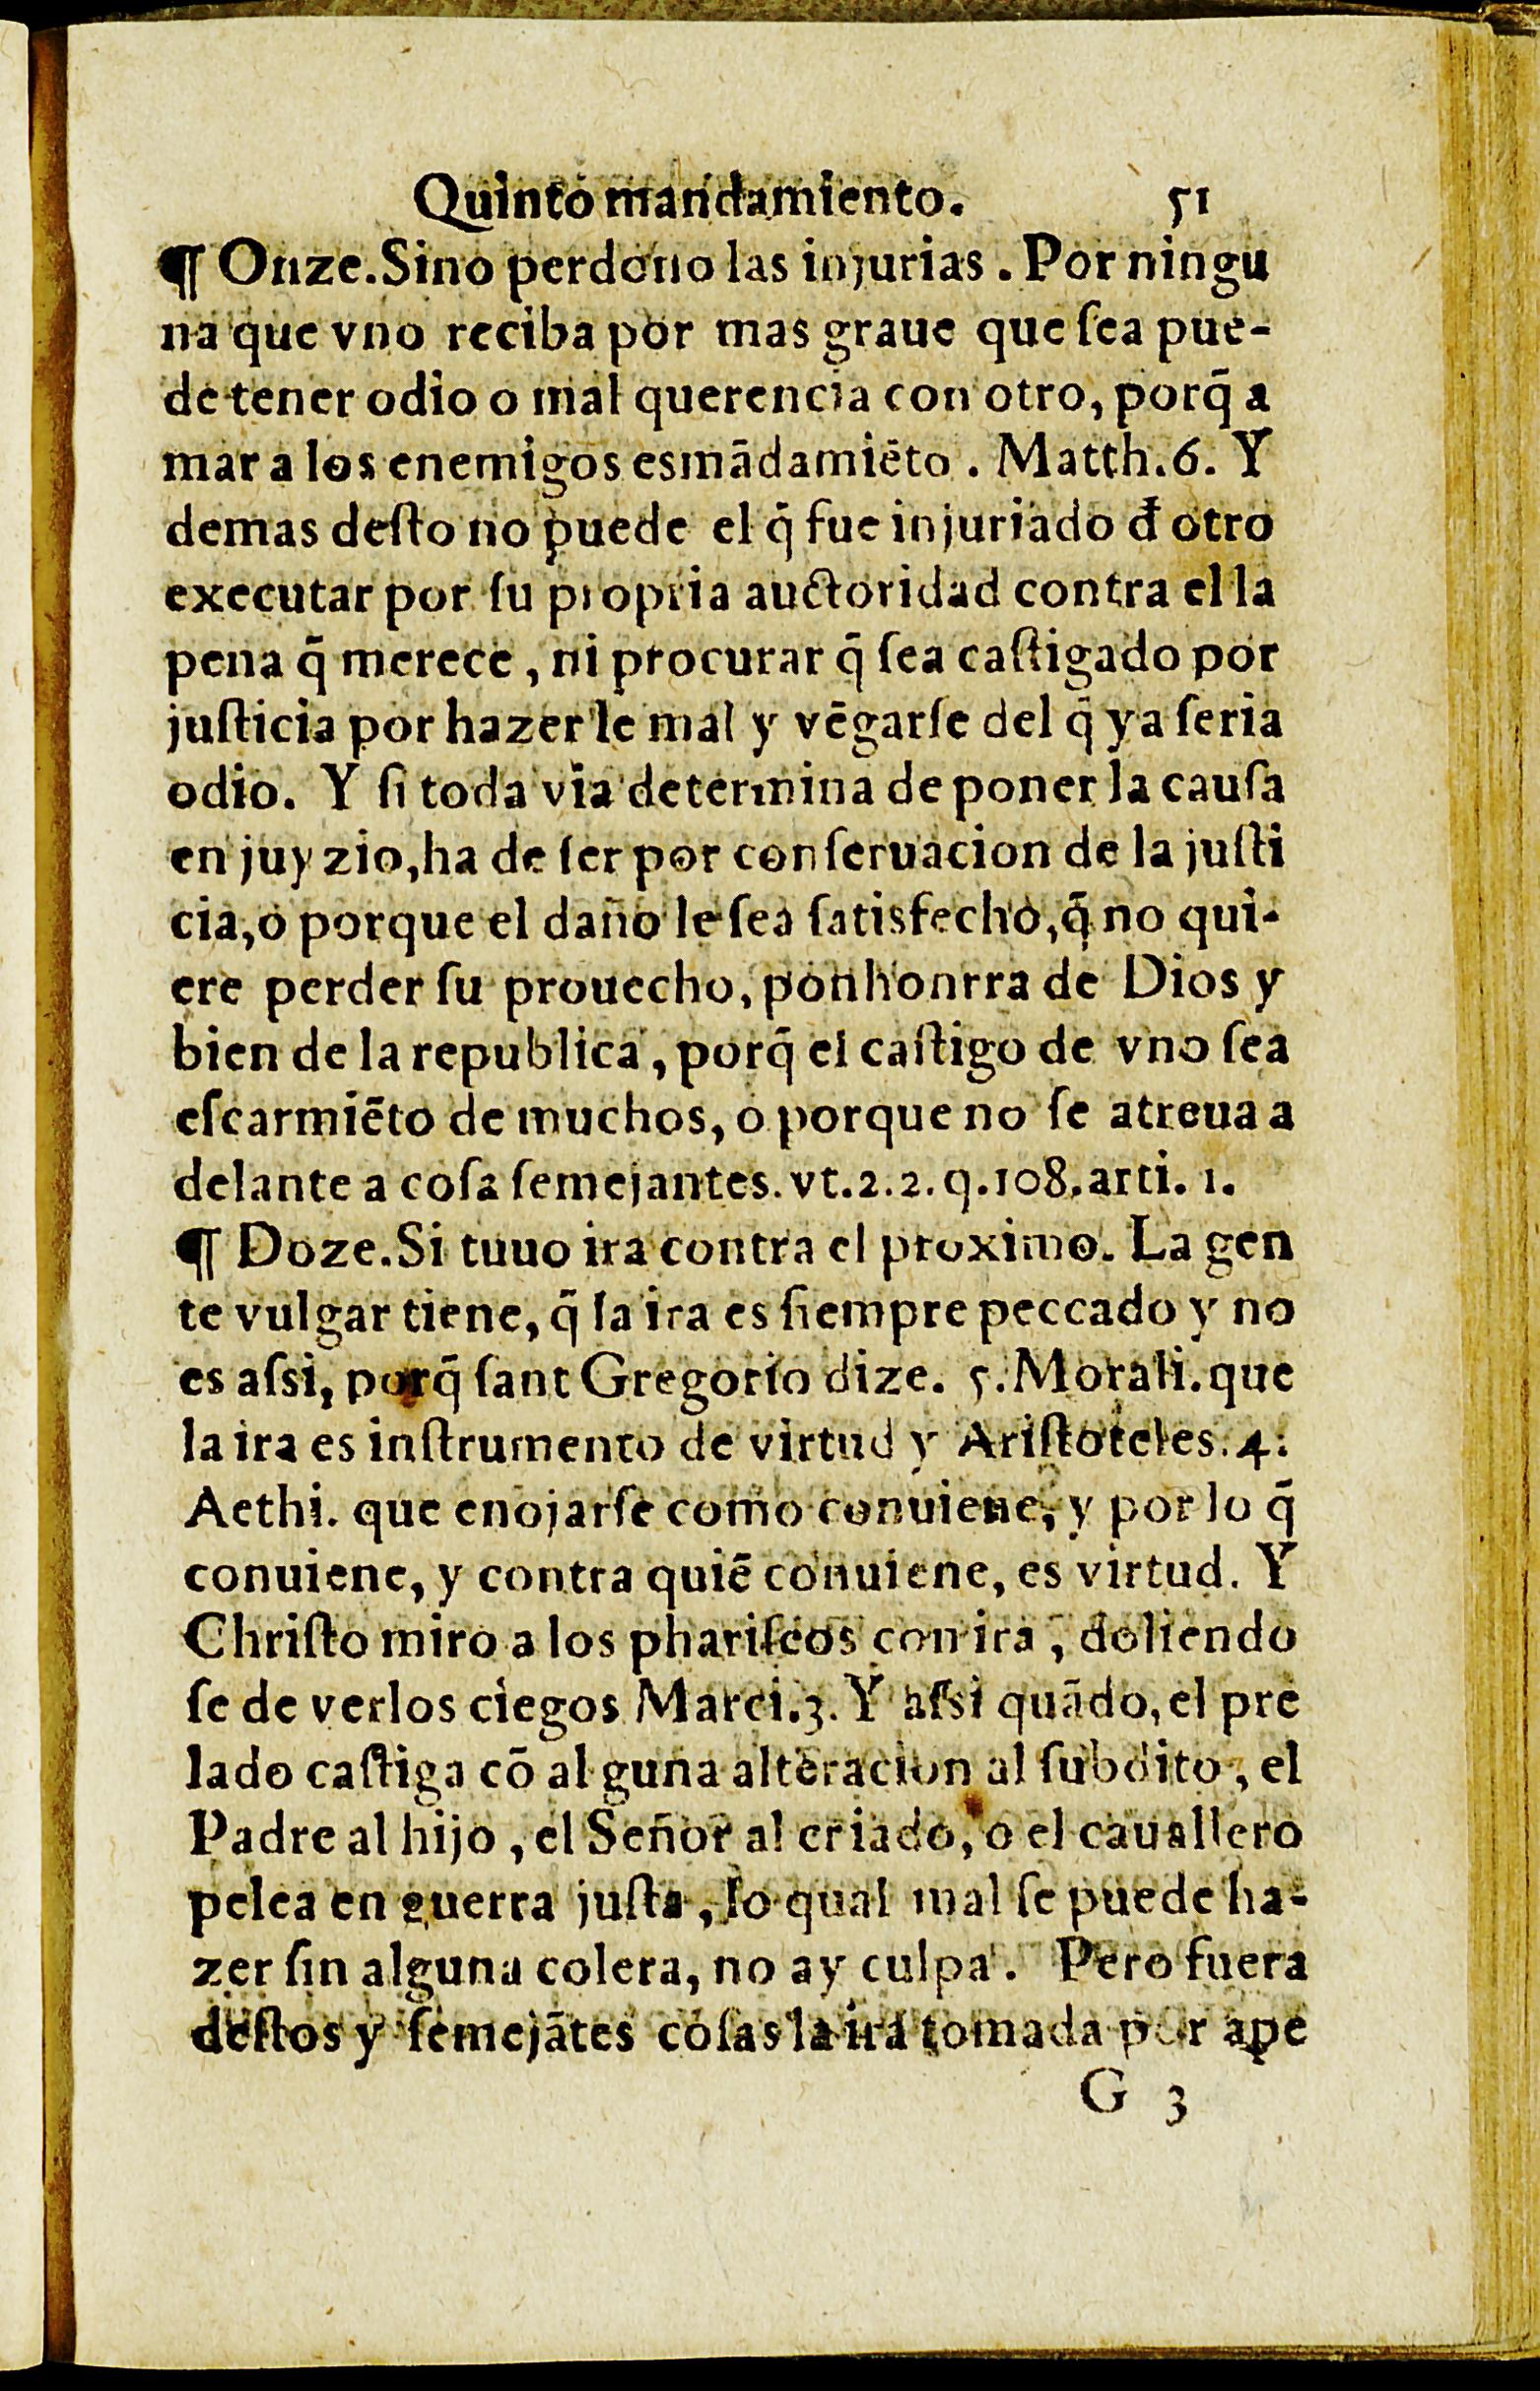 Quinto mandamiento. 51
¶ Onze. Sino perdono las injurias. Por ningu
na que vno reciba por mas graue que ſea pue-
de tener odio o mal querencia con otro, porq̃ a
mar a los enemigos es mādamiēto. Matth. 6. Y
demas deſto no puede el q̃ fue injuriado đ otro
executar por ſu propria auctoridad contra el la
pena q̃ merece, ni procurar q̃ ſea caſtigado por
juſticia por hazer le mal y vēgarſe del q̃ ya ſeria
odio. Y ſi toda via determina de poner la cauſa
en juyzio, ha de ſer por conſeruacion de la juſti
cia, o porque el daño le ſea ſatisfecho, q̃ no qui-
ere perder ſu prouecho, por honrra de Dios y
bien de la republica, porq̃ el caſtigo de vno ſea
eſcarmiēto de muchos, o porque no ſe atreua a
delante a coſa ſemejantes. vt. 2. 2. q. 108. arti. 1.
¶ Doze. Si tuuo ira contra el proximo. La gen
te vulgar tiene, q̃ la ira es ſiempre peccado y no
es aſsi, porq̃ ſant Gregorio dize. 5. Morali. que
la ira es inſtrumento de virtud y Ariſtoteles. 4.
Aethi. que enojarſe como conuiene, y por lo q̃
conuiene, y contra quiē conuiene, es virtud. Y
Chriſto miro a los phariſeos con ira, doliendo
ſe de verlos ciegos Marci. 3. Y aſsi quādo, el pre
lado caſtiga cō alguna alteracion al ſubdito, el
Padre al hijo, el Señor al criado, o el cauallero
pelea en guerra juſta, lo qual mal ſe puede ha-
zer ſin alguna colera, no ay culpa. Pero fuera
deſtos y ſemejātes coſas la ira tomada por ape
G 3